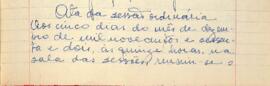 Ata da sessão ordinária
Aos cinco dias do mês de dezem-
bro de mil novecentos e sessen-
ta e dois, às quinze horas, na
sala das sessões, reuniu-se o